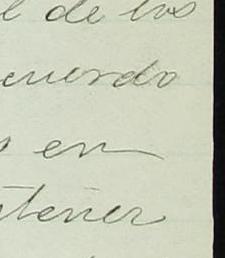 l de los
cuerdo
s en
tener